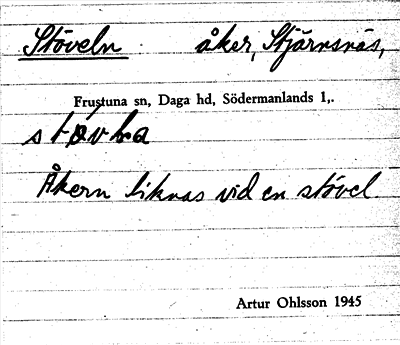 Stöveln åker, Stjärnsnäs,
Frustuna sn, Daga hd, Södermanlands l,.
Åkern liknas vid en stövel
Artur Ohlsson 1945